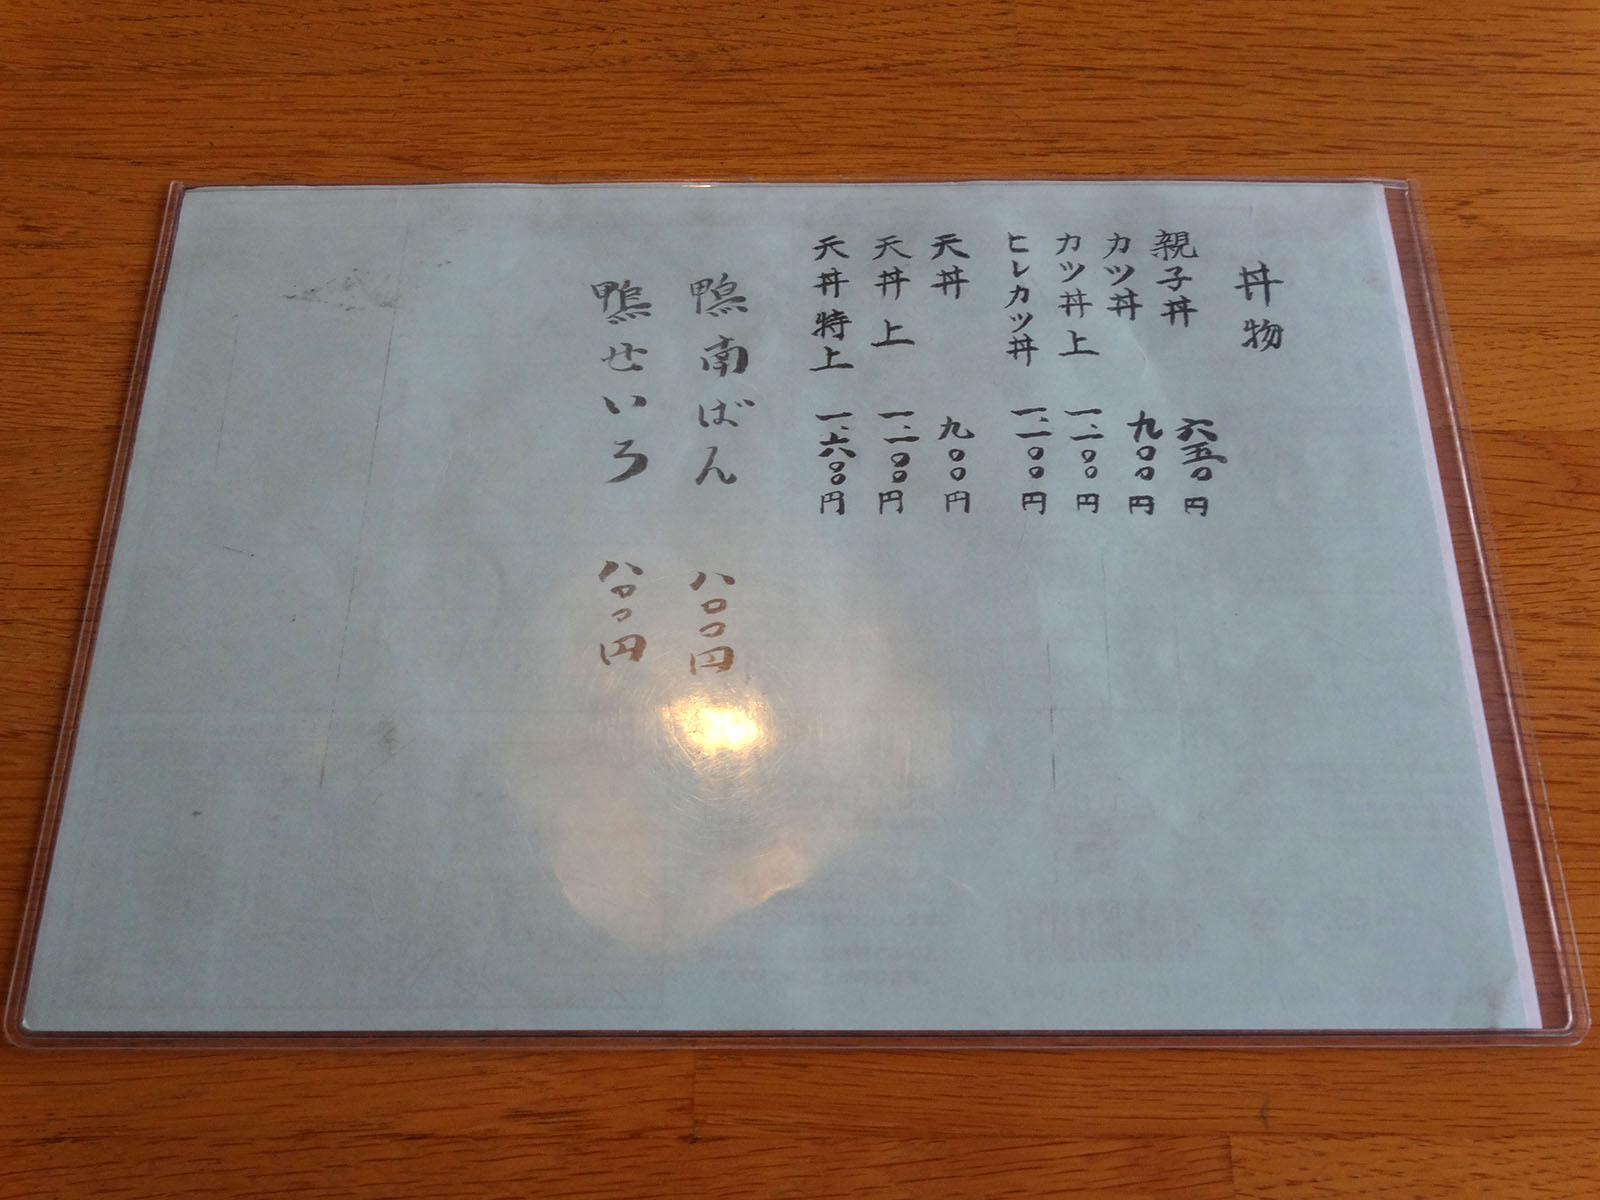 丼物
親子丼 六五〇円
カツ丼 九〇〇円
カツ丼上 一、一〇〇円
ヒレカツ丼 一、一〇〇円
天丼 九〇〇円
天丼上 一、一〇〇円
天丼特上 一、六〇〇円
鴨南ばん 八〇〇円
鴨せいろ 八〇〇円